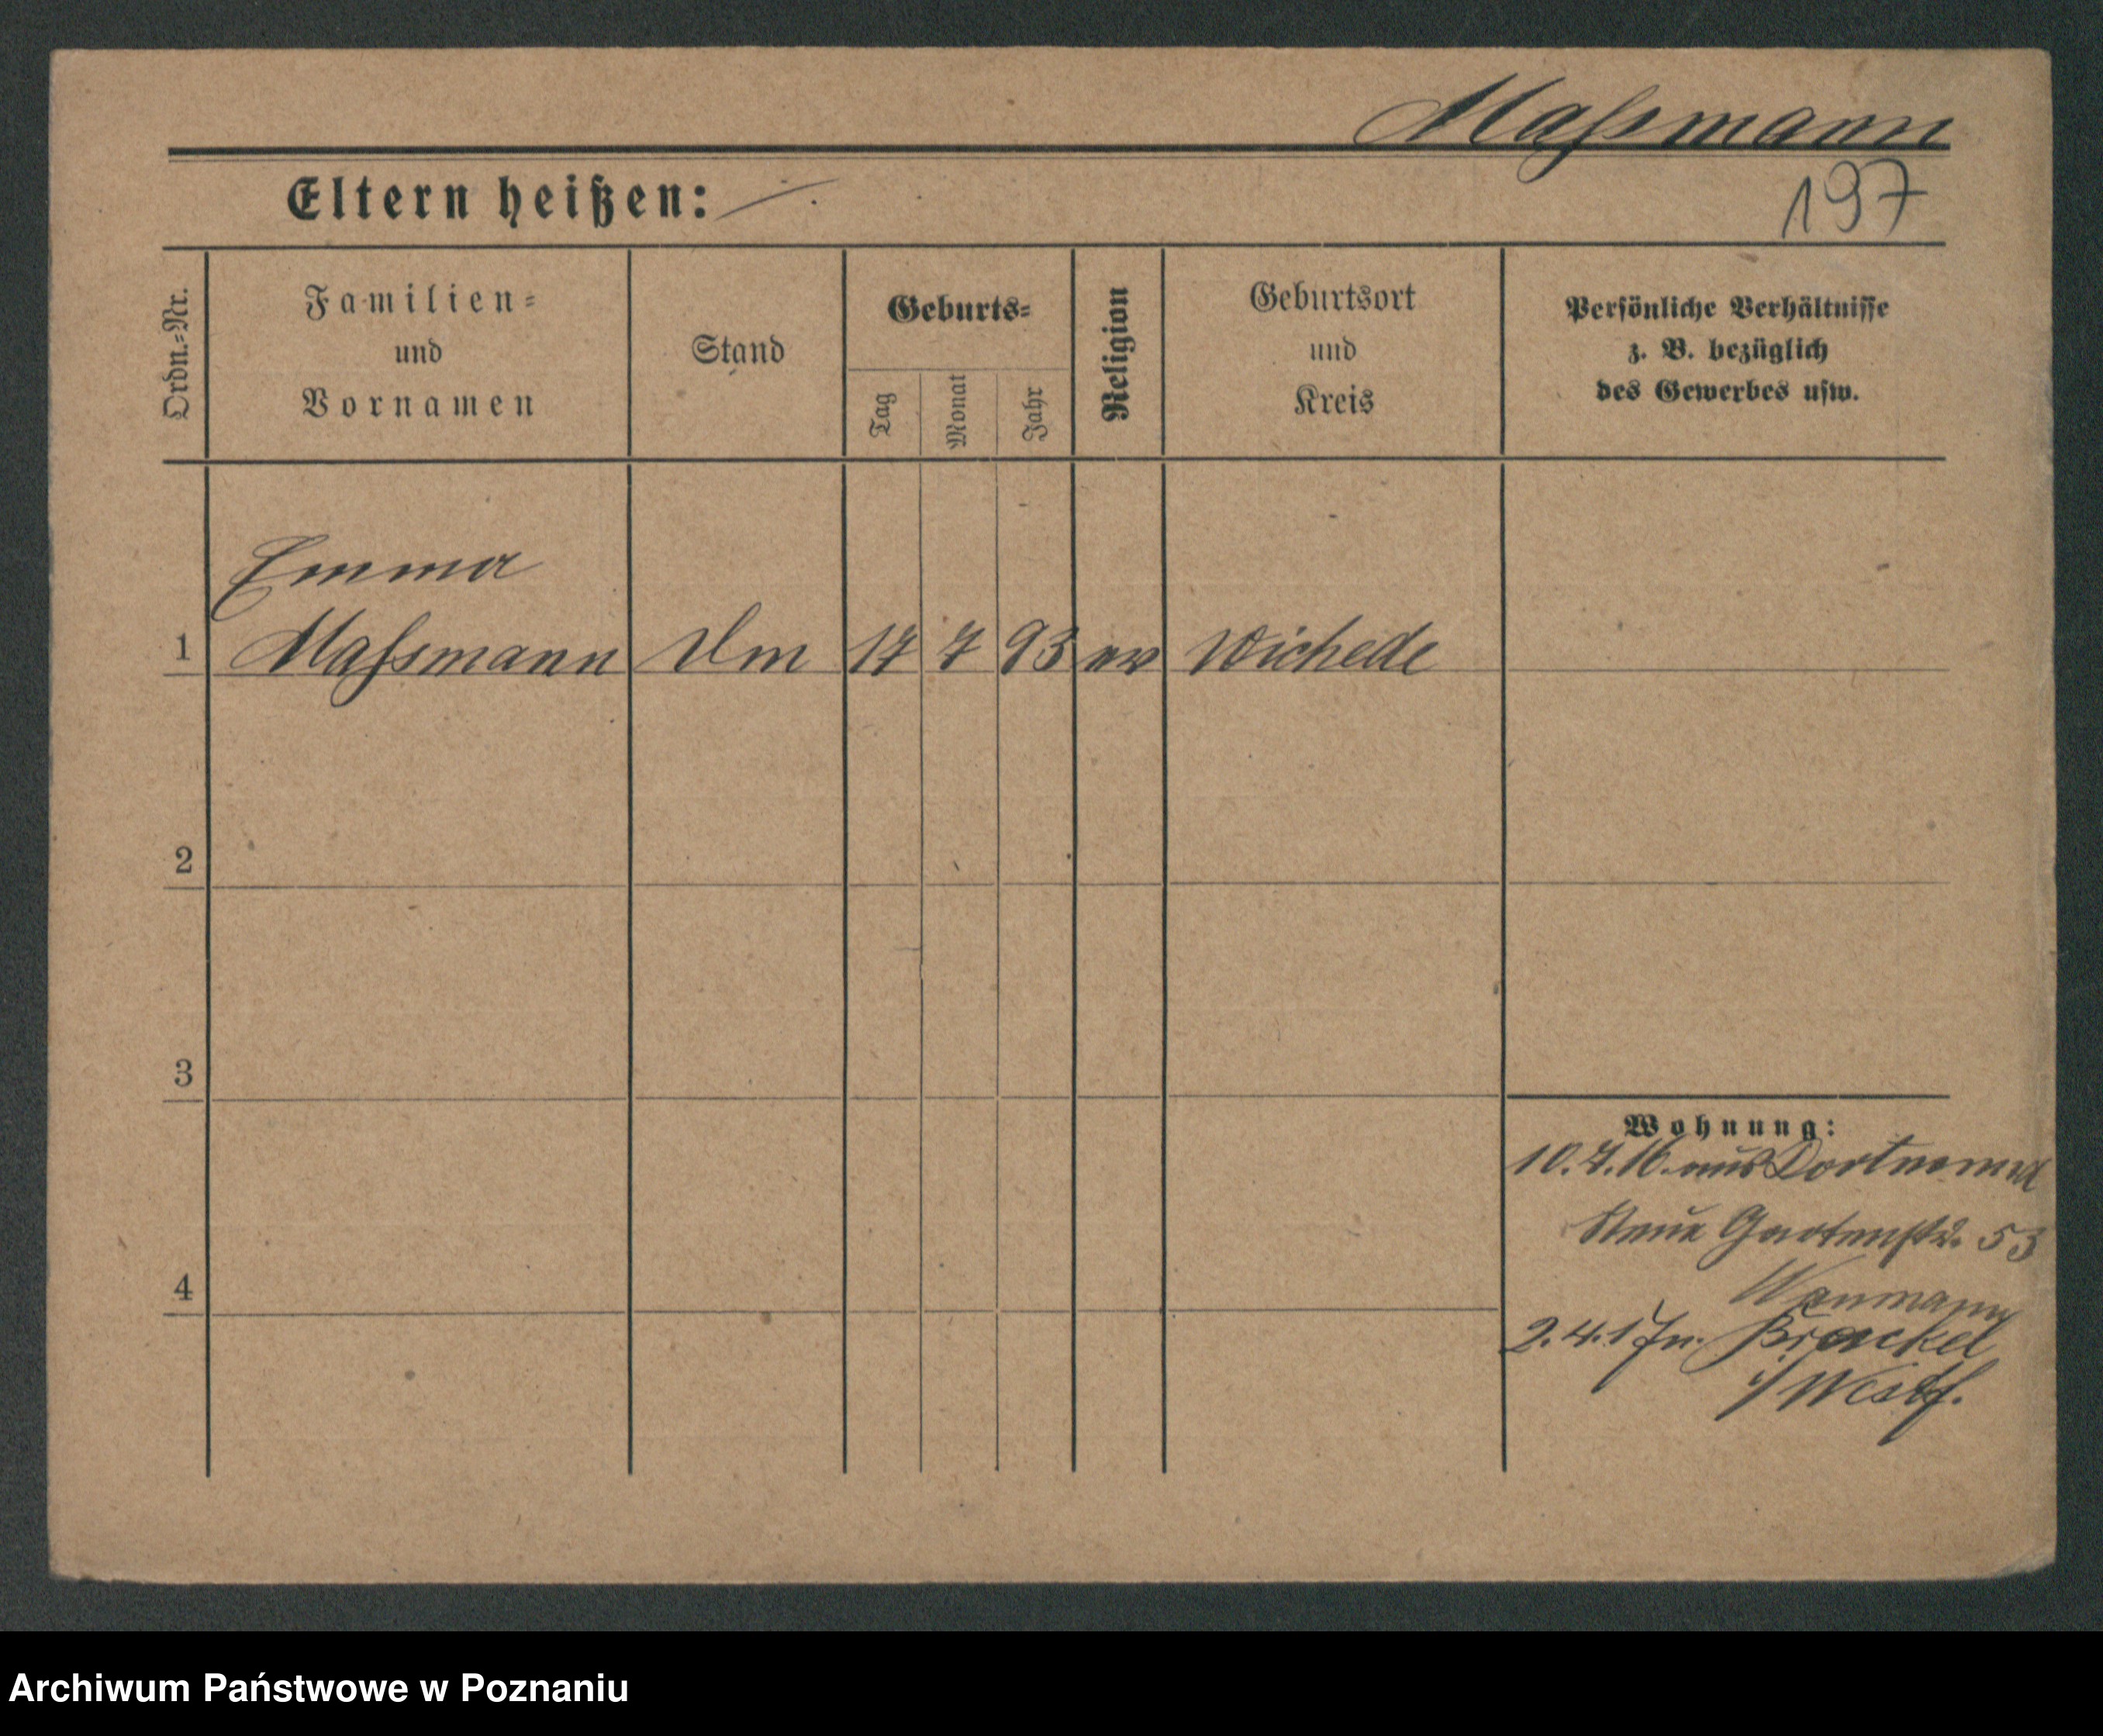 Maſsmann
Eltern heißen:
197
Ordn.-Nr.
Familien-
und
Vornamen
Stand
Geburts-
Tag
Monat
Jahr
Religion
Geburtsort
und
Kreis
Persönliche Verhältnisse
z. B. bezüglich
des Gewerbes usw.
Emma
1 Maſsmann 17 7 93 ev Wichede
2
3
Wohnung:
10.7.16. aus Dortmund
Neue Gartenstr. 53
4
2.4.17 n. Brackel
i/Westf.
Archiwum Państwowe w Poznaniu